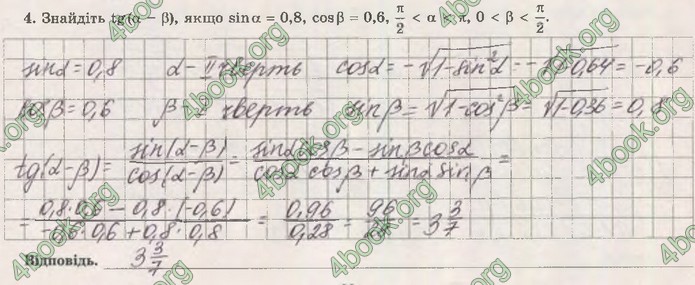 4. Знайдіть tg(α − β), якщо sin α = 0,8, cos β = 0,6, π/2 < α < π, 0 < β < π/2.
sinα = 0,8 α − II чверть cosα = −√(1−sin²α) = −√(1−0,64) = −0,6
cosβ = 0,6 β − I чверть sinβ = √(1−cos²β) = √(1−0,36) = 0,8
tg(α−β) = sin(α−β)/cos(α−β) = (sinα cosβ − sinβ cosα)/(cosα cosβ + sinα sinβ) =
= (0,8·0,6 − 0,8·(−0,6))/(−0,6·0,6 + 0,8·0,8) = 0,96/0,28 = 96/28 = 3 3/7
Відповідь. 3 3/7
4book.org